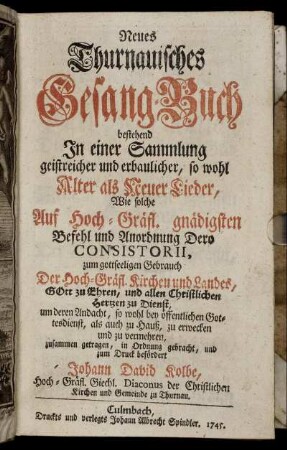 Neues
Thurnauisches
Gesang-Buch
bestehend
In einer Sammlung
geistreicher und erbaulicher, so wohl
Alter als Neuer Lieder,
Wie solche
Auf Hoch-Gräfl. gnädigsten
Befehl und Anordnung Dero
CONSISTORII,
zum gottseeligen Gebrauch
Der Hoch-Gräfl. Kirchen und Landes,
GOtt zu Ehren, und allen Christlichen
Hertzen zu Dienst,
um deren Andacht, so wohl bey öffentlichen Got-
tesdienst, als auch zu Hauß, zu erwecken
und zu vermehren,
zusammen getragen, in Ordnung gebracht, und
zum Druck befördert
Johann David Kolbe,
Hoch-Gräfl. Giech. Diaconus der Christlichen
Kirchen und Gemeinde zu Thurnau.
Culmbach,
Druckts und verlegts Johann Albrecht Spindler. 1745.